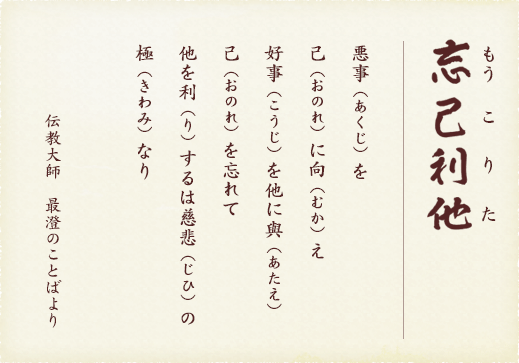 もうこりた
忘己利他
悪事（あくじ）を
己（おのれ）に向（むか）え
好事（こうじ）を他に與（あたえ）
己（おのれ）を忘れて
他を利（り）するは慈悲（じひ）の
極（きわみ）なり
伝教大師　最澄のことばより